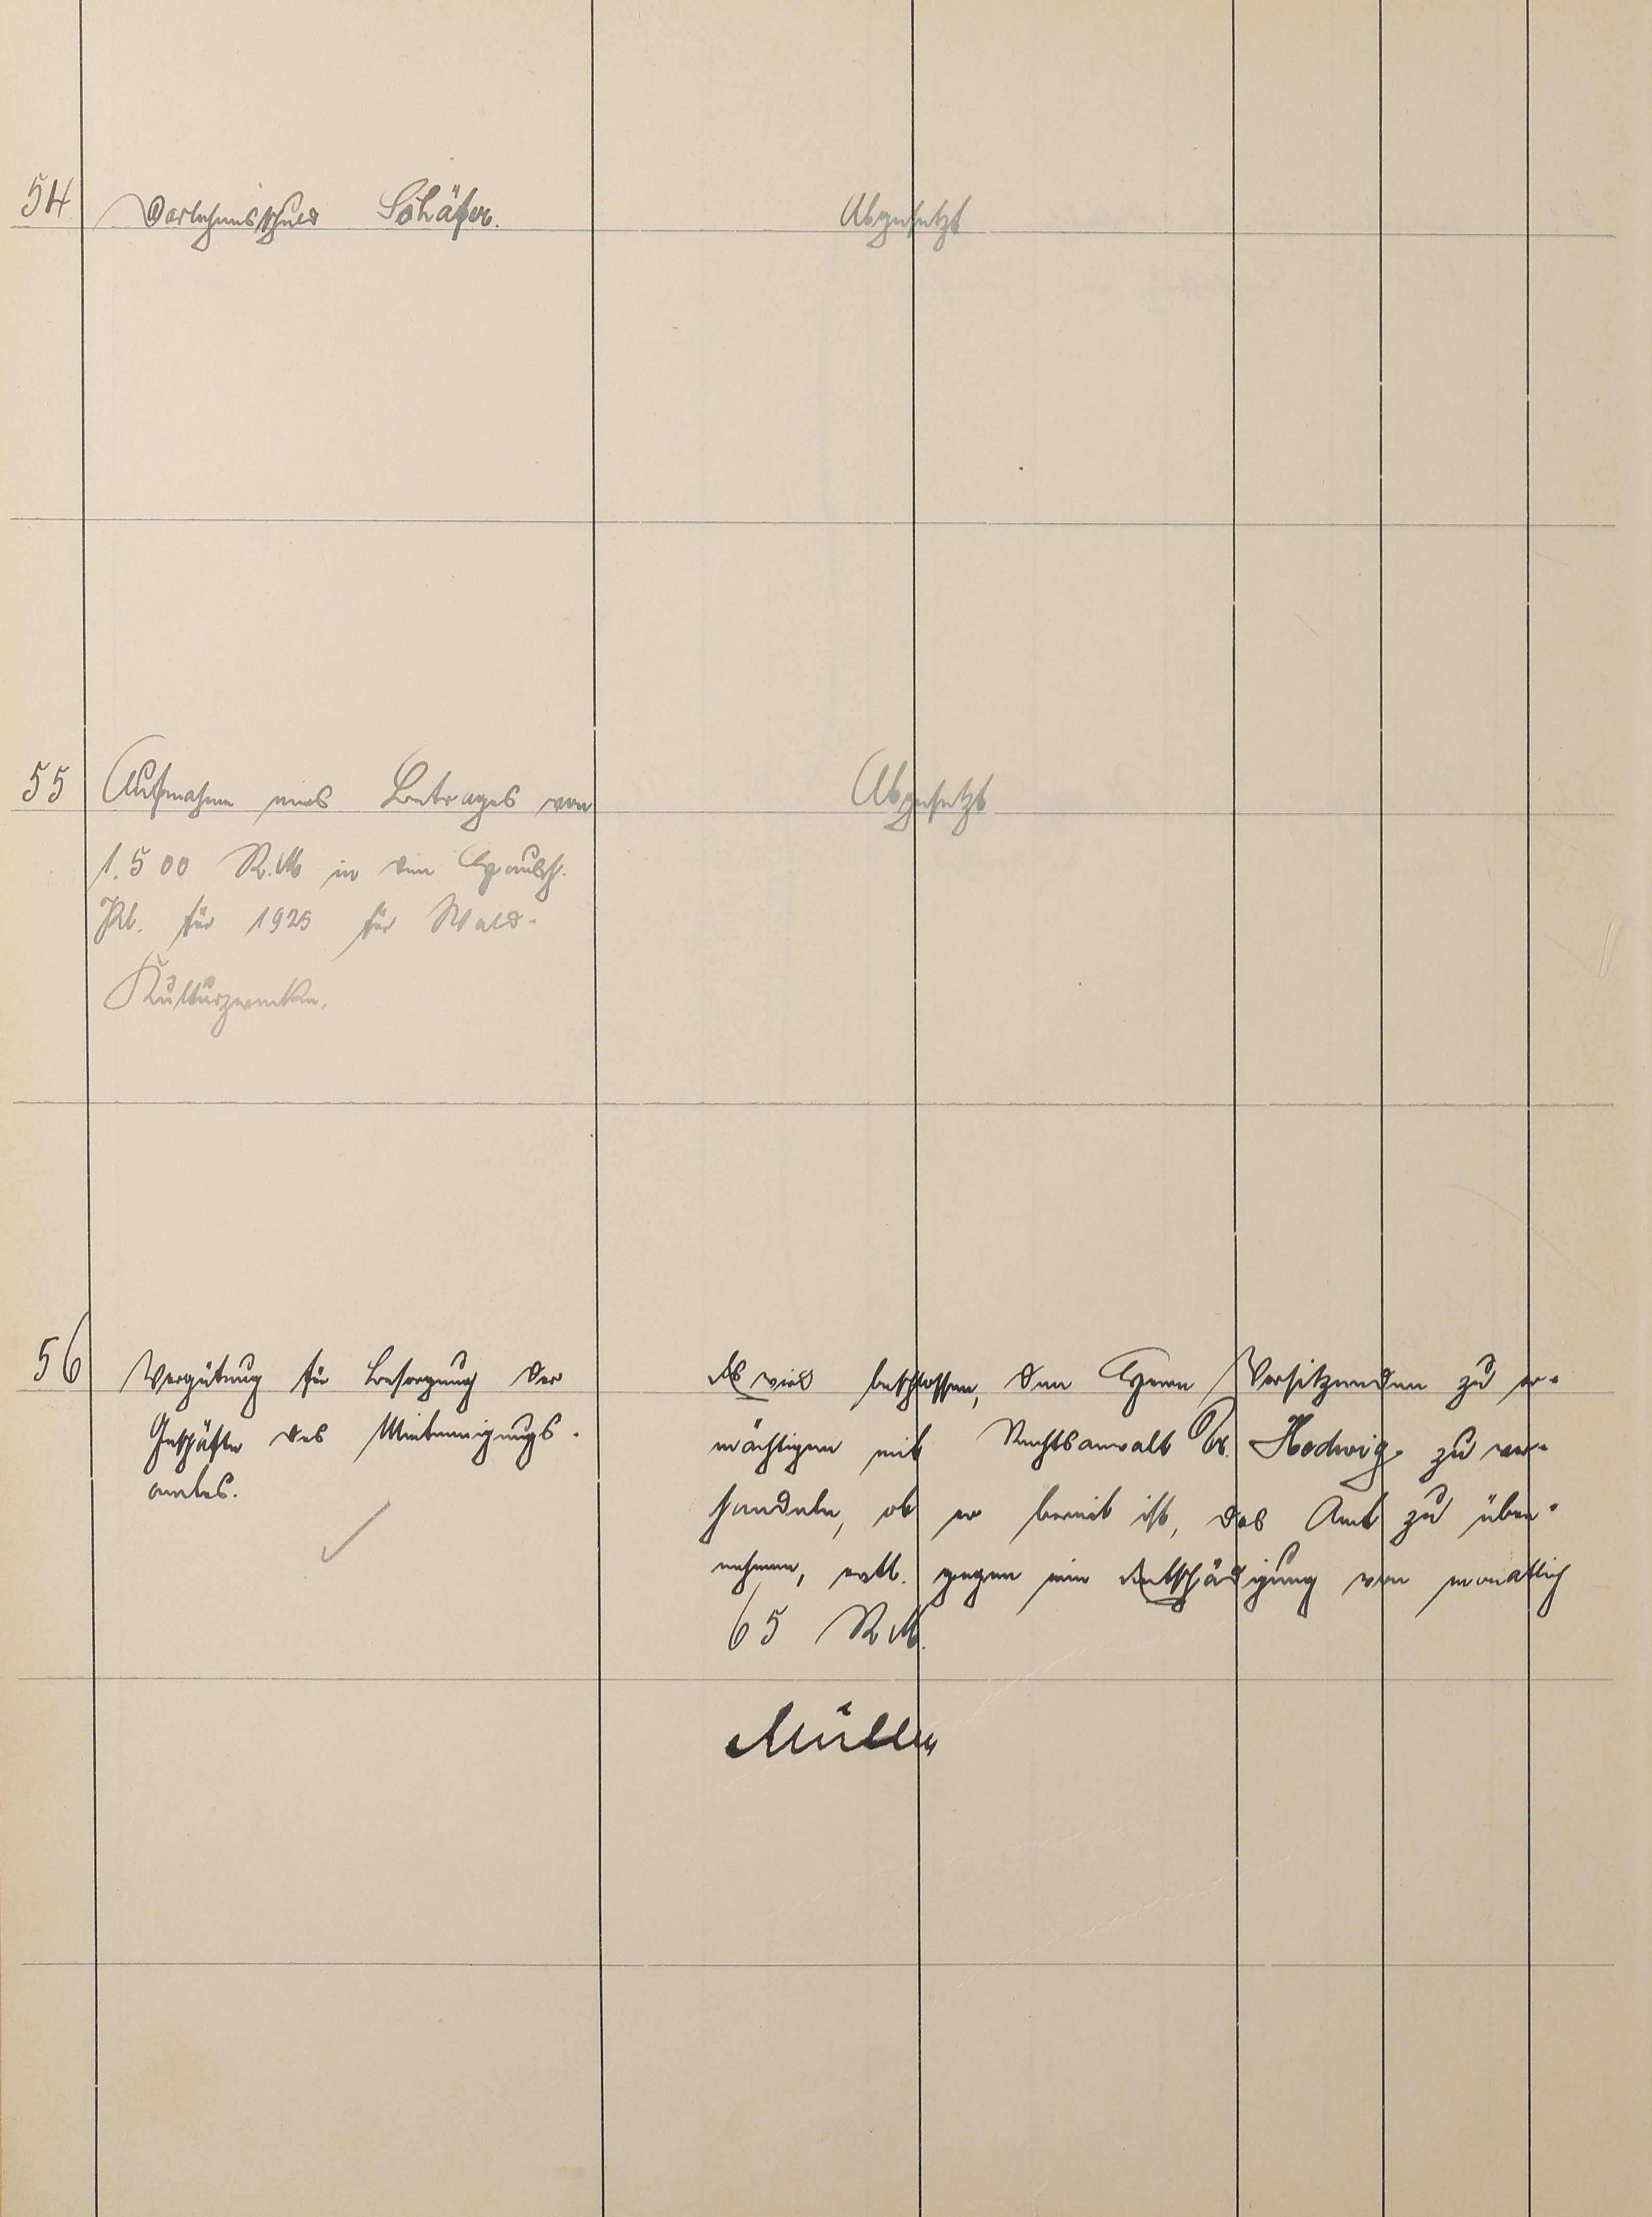 54 Darlehensschuld Schäfer. Abgesetzt
55 Aufnahme eines Betrages von Abgesetzt
1.500 R.M in den Haush.
Pl. für 1925 für Wald-
Kulturzwecken.
56 Vergütung für Besorgung der
Geschäfte des Mieteinigungs-
amtes.
Es wird beschlossen, den Herrn Vorsitzenden zu er-
mächtigen mit Rechtsanwalt Dr. Hedwig zu ver-
handeln, ob er bereit ist, das Amt zu über-
nehmen, evtl. gegen eine Entschädigung von monatlich
65 RM.
Müller